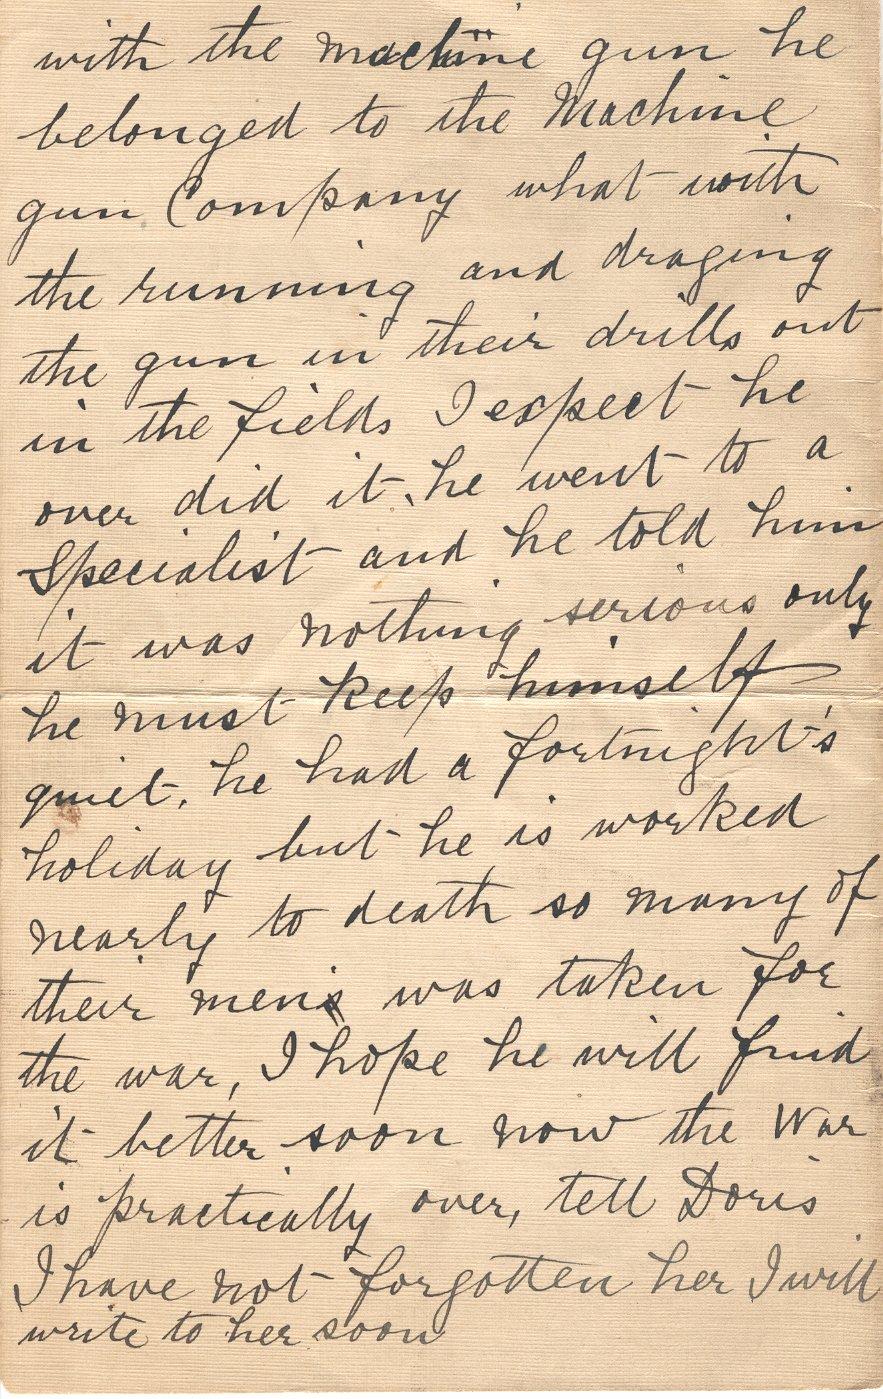 with the machine gun he
belonged to the Machine
gun Company what with
the running and draging
the gun in their drills out
in the fields I expect he
over did it, he went to a
Specialist and he told him
it was nothing serious only
he must keep himself
quiet, he had a fortnight's
holiday but he is worked
nearly to death so many of
their mens was taken for
the war, I hope he will find
it better soon now the War
is practically over, tell Doris
I have not forgotten her I will
write to her soon